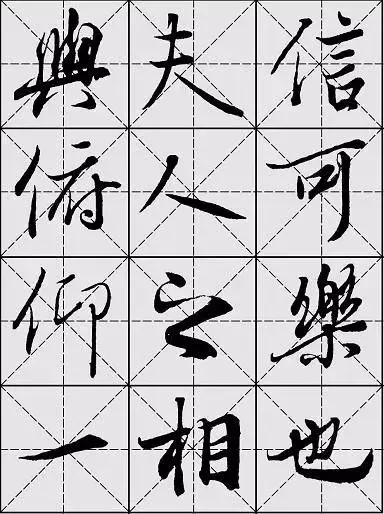 信可樂也
夫人之相
與俯仰一